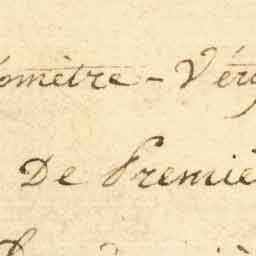 omètre - Vér
De Premiè